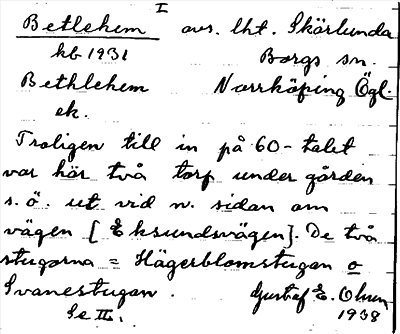 I
Betlehem avs. lht. Skärlunda
kb 1931 Borgs sn.
Bethlehem Norrköping Ögl.
ek.
Troligen till in på 60-talet
var här två torp under gården
s. ö. ut vid n. sidan om
vägen [Eksundsvägen]. De två
stugorna = Hägerblomstugan o
Svanestugan. Gustaf E. Olsson
Se II. 1938